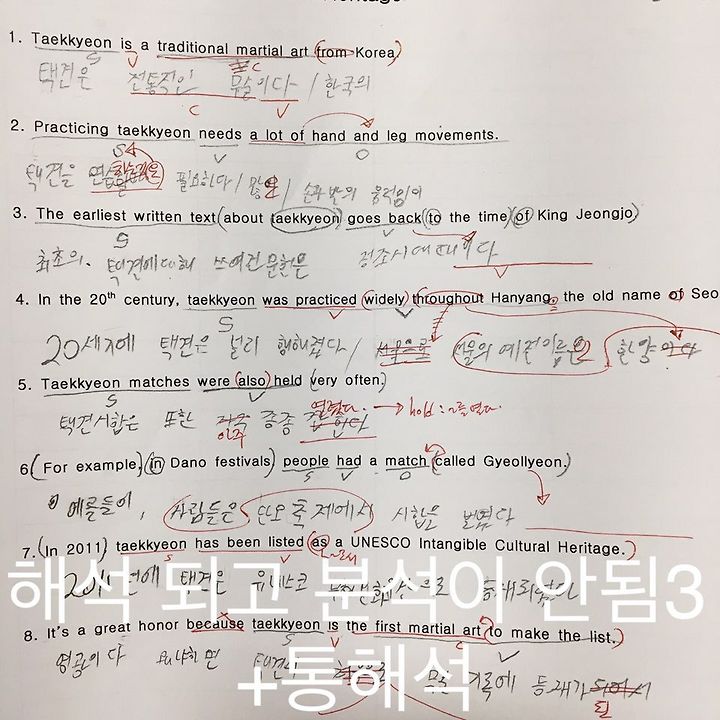 Heritage
1. Taekkyeon is a traditional martial art (from Korea)
S C
택견은 전통적인 무술이다 / 한국의
C V
2. Practicing taekkyeon needs a lot of hand and leg movements.
S V O
택견을 필요하다 / 많은 / 손과 발의 움직임이
3. The earliest written text (about taekkyeon) goes back (to the time) of King Jeongjo)
S V
최초의. 택견에 대해 쓰여진 문헌은
4. In the 20th century, taekkyeon was practiced (widely) throughout Hanyang, the old name of Seo
S V
20세기에 택견은 널리 행해졌다 / 서울의 예전이름은 한양
5. Taekkyeon matches were (also) held (very often.)
S V
택견시합은 또한 종종 열렸다.
아주
6 (For example,) (in Dano festivals) people had a match (called Gyeollyeon.)
S V O
예를들어, 사람들은 단오축제에서 시합을
7. (In 2011) taekkyeon has been listed as a UNESCO Intangible Cultural Heritage.)
S V ~로서
택견은 유네스코
해석 되고 분석이 안됨3
8. It's a great honor because taekkyeon is the first martial art to make the list.)
S V
영광이다 왜냐하면 택견이
+통해석